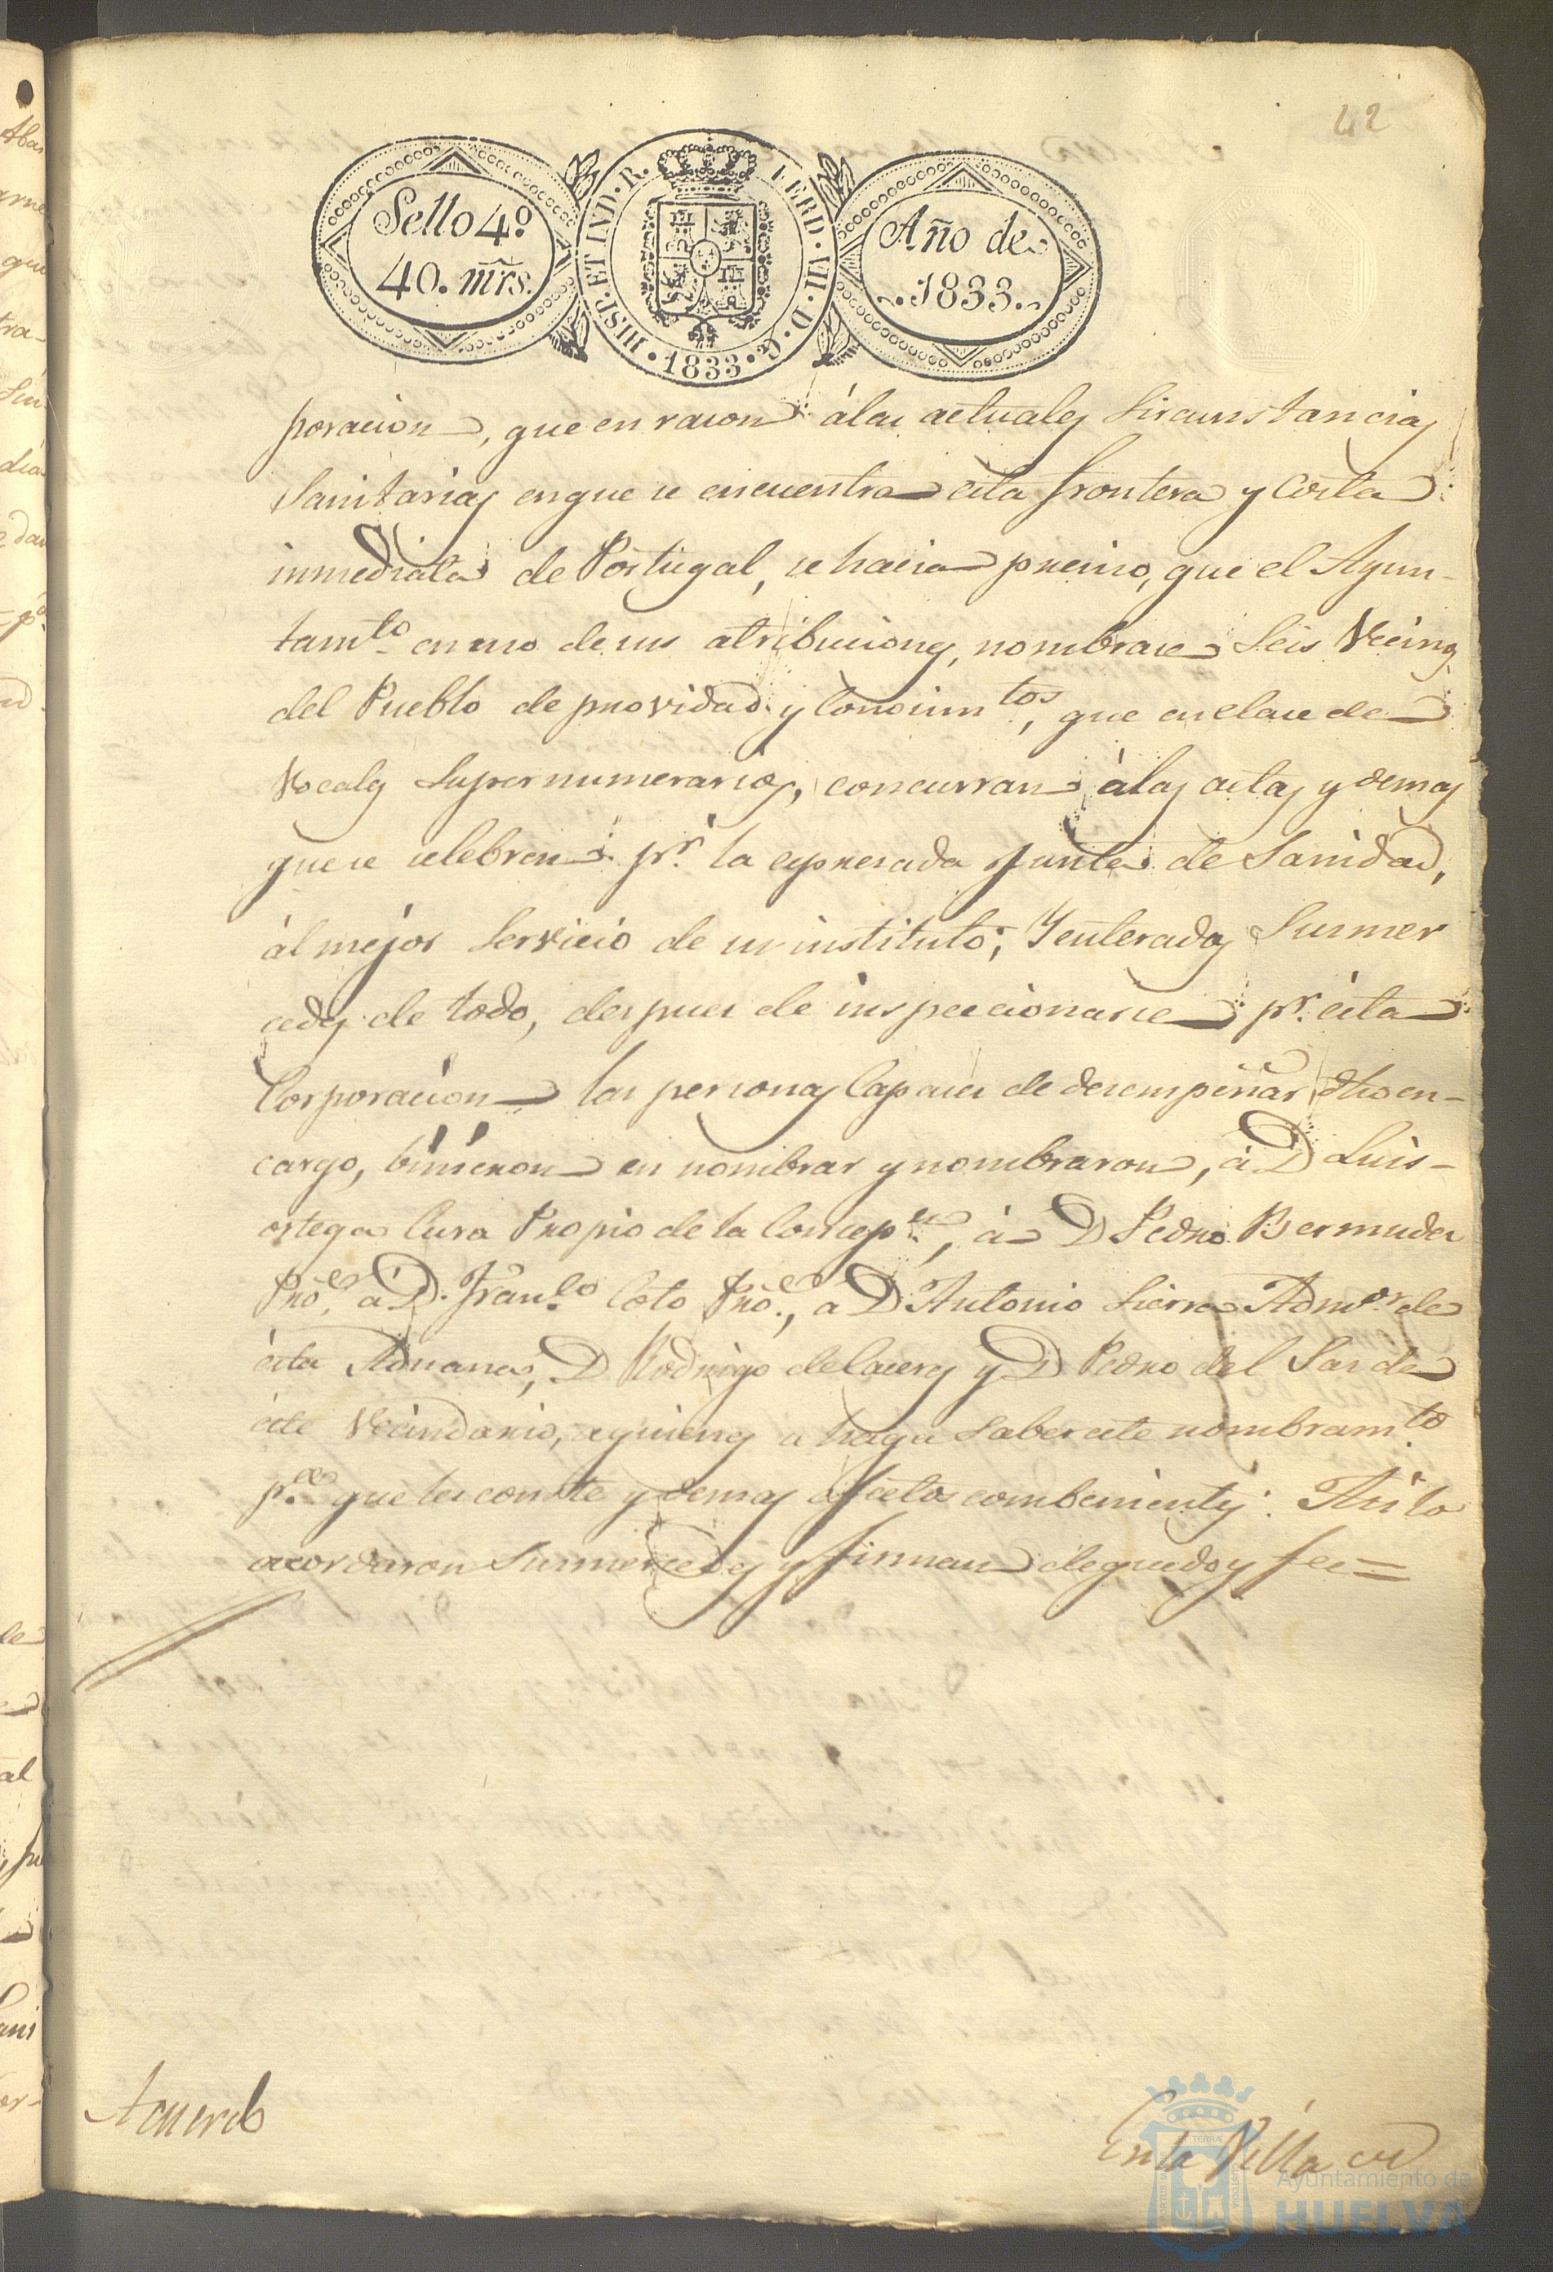 42
Sello 4º
40. mrs.
HISP. ET IND. R. FERD. VII. D. G. 1833
Año de
1833.
poracion, que en racon á las actuales Sircunstancias
Sanitarias en que se encuentra esta frontera y Costa
inmediata de Portugal, se hacia preciso, que el Ayun-
tamto. en uso de sus atribuciones, nombrase Seis Vecinos
del Pueblo de providad y Conosimtos, que en clase de
Vocales Supernumerarios, concurran á las actas y demas
que se celebren pr. la expresada Junta de Sanidad,
al mejor Servicio de su instituto; Y enterados Sus mer
cedes de todo, despues de inspeccionarse pr. esta
Corporacion las personas Capaces de desempeñar dho en-
cargo, binieron en nombrar y nombraron, á D Luis
ortega Cura Propio de la Concepn., á D Pedro Bermudez
Pro., á D. Franco. Coto Pro., a D Antonio Sierra Admor. de
esta Aduana, D Rodrigo de y D Pedro del Sar de
este Vecindario, a quienes se haga Saber este nombramto.
pa. que les conste y demas efectos combenientes: Asi lo
acordaron Sus mercedes y firman de que doy fee=
Acuerdo
En la Villa de
Ayuntamiento de
HUELVA